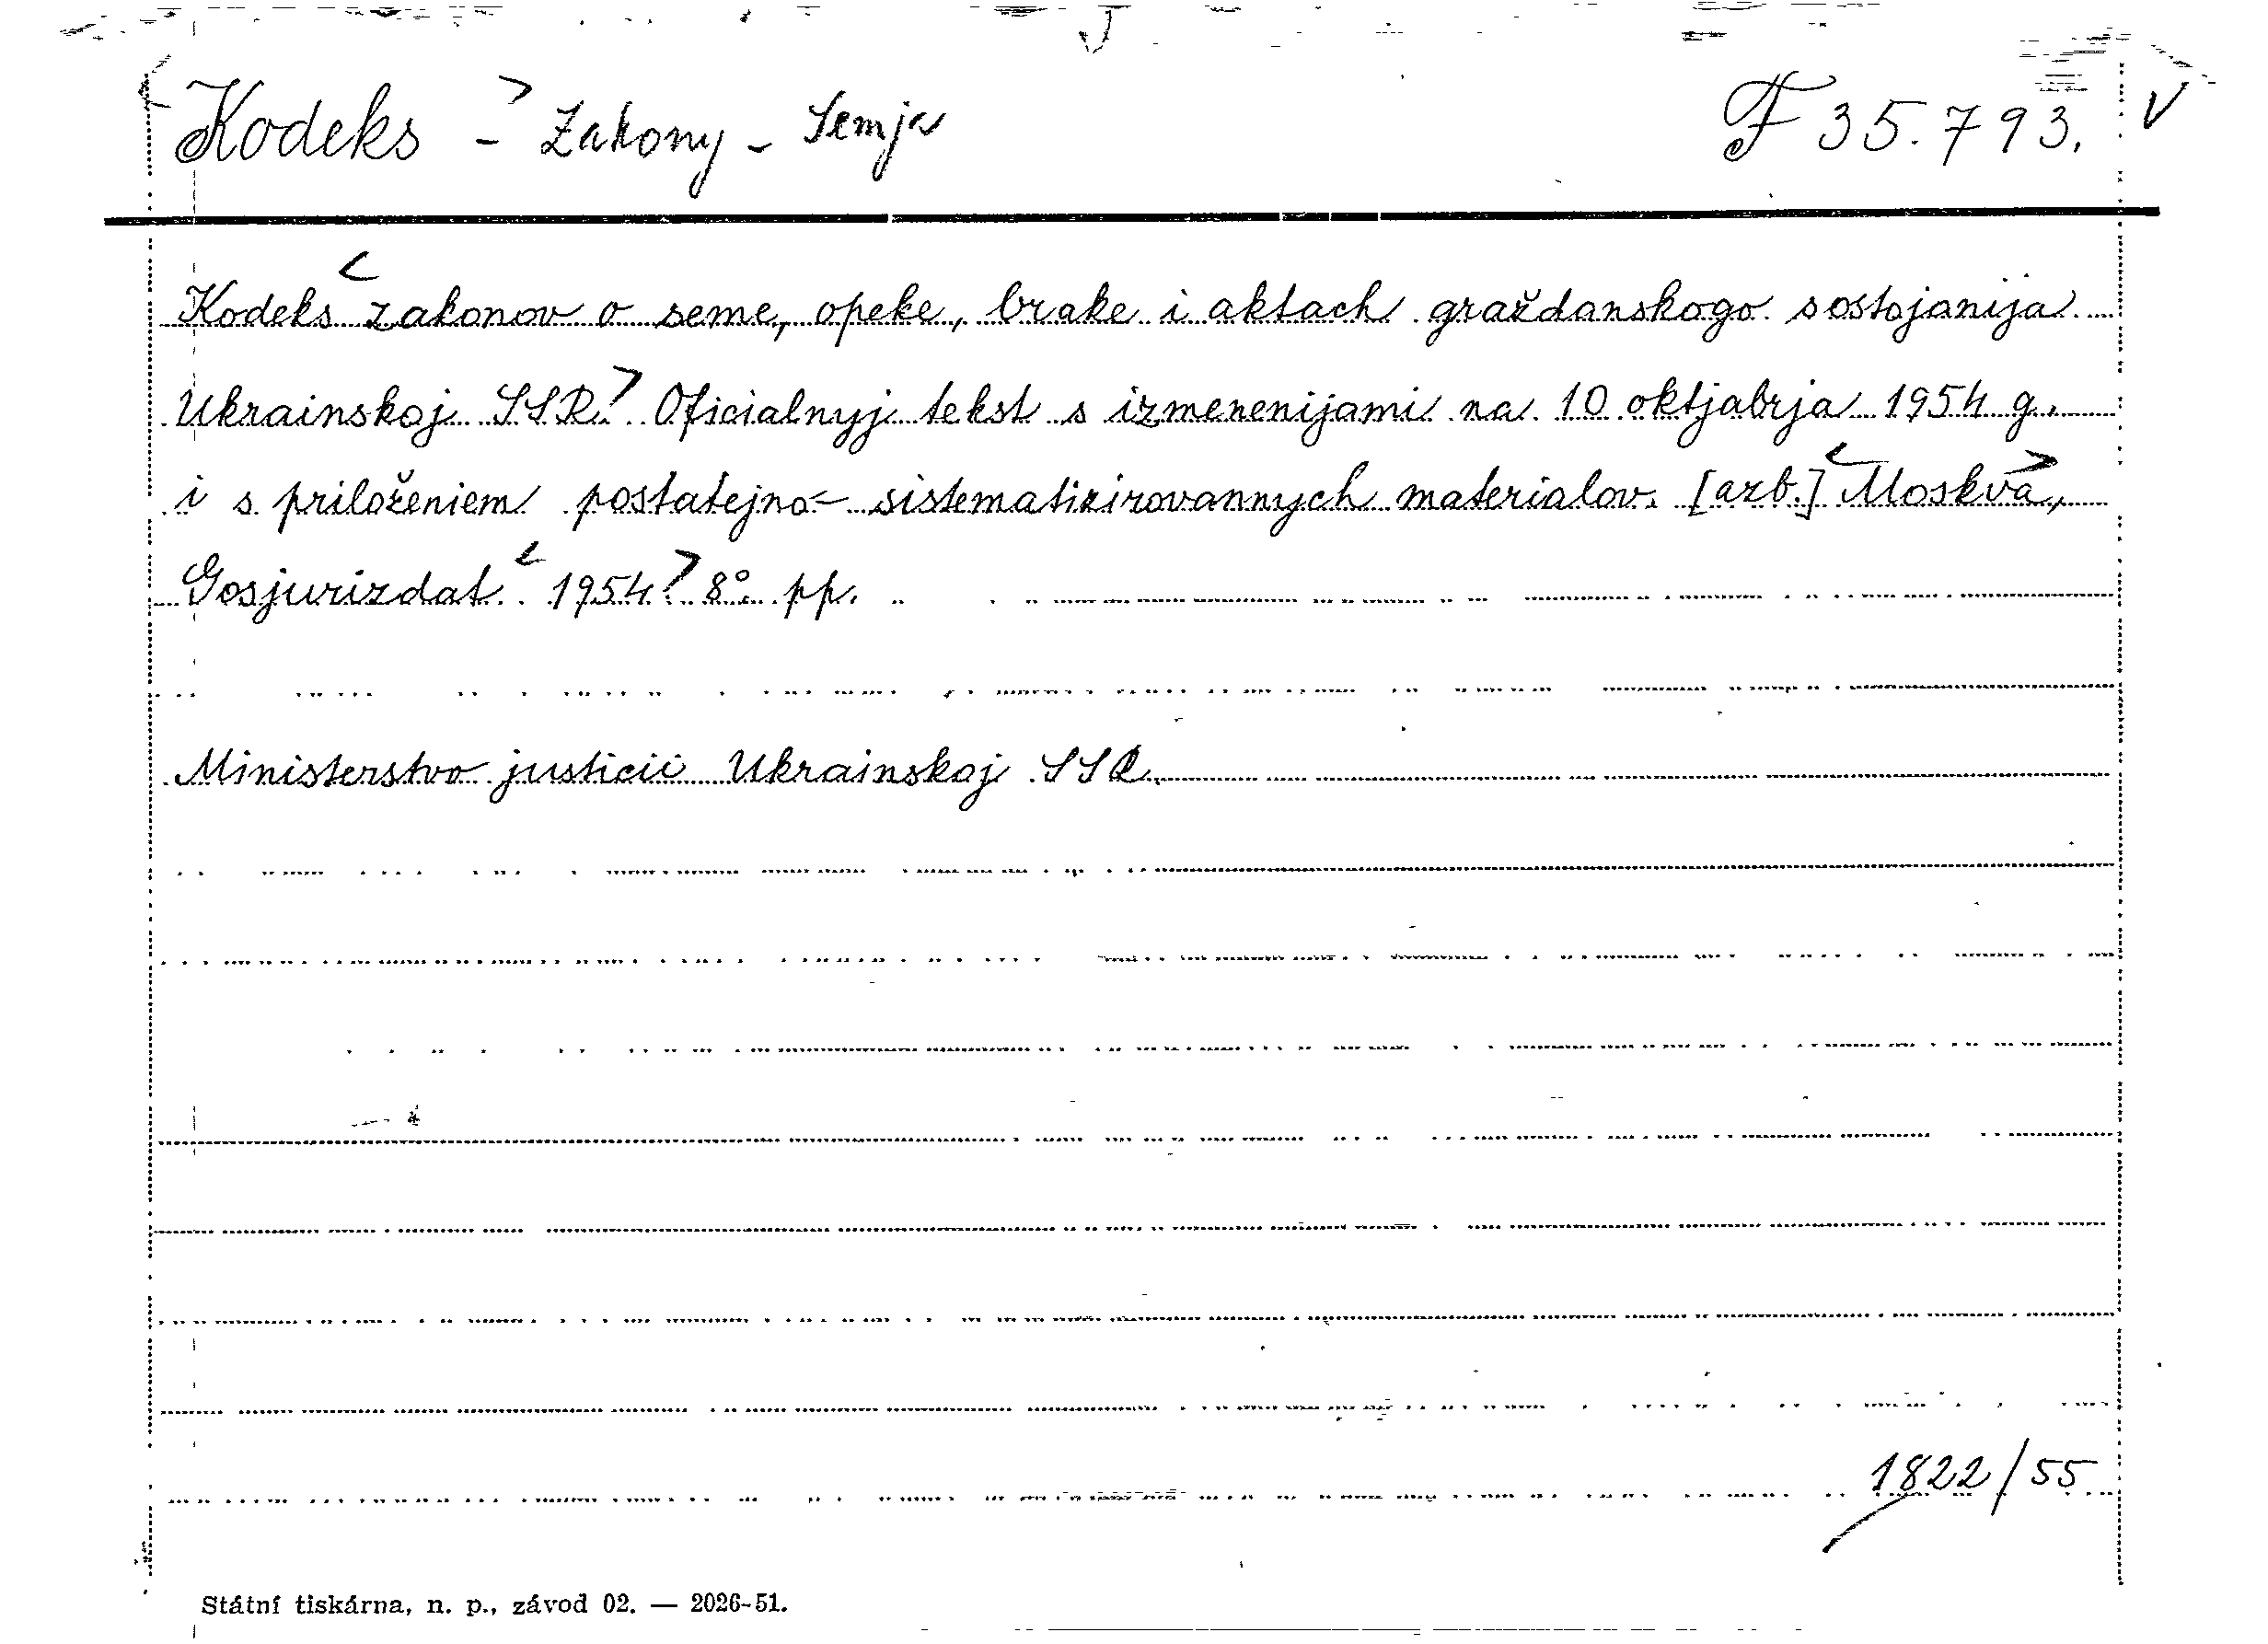 Kodeks - Zakony - Semja F 35.793. V
Kodeks zakonov o seme, opeke, brake i aktach graždanskogo sostojanija
Ukrainskoj SSR. Oficialnyj tekst s izmenenijami na 10 oktjabrja 1954 g.
i s priloženiem postatejno-sistematizirovannych materialov. [azb.] Moskva,
Gosjurizdat 1954. 8°. pp.
Ministerstvo justicii Ukrainskoj SSR.
1822/55
Státní tiskárna, n. p., závod 02. — 2026-51.